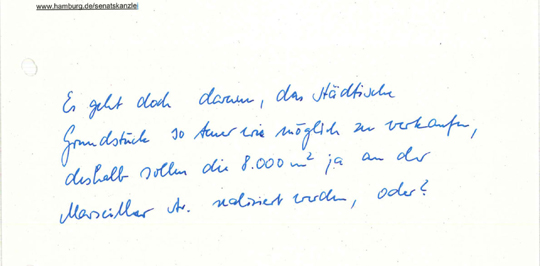 www.hamburg.de/senatskanzlei
Es geht doch darum, das städtische
Grundstück so teuer wie möglich zu verkaufen,
deshalb sollen die 8.000 m² ja an der
Marseiller Str. realisiert werden, oder?